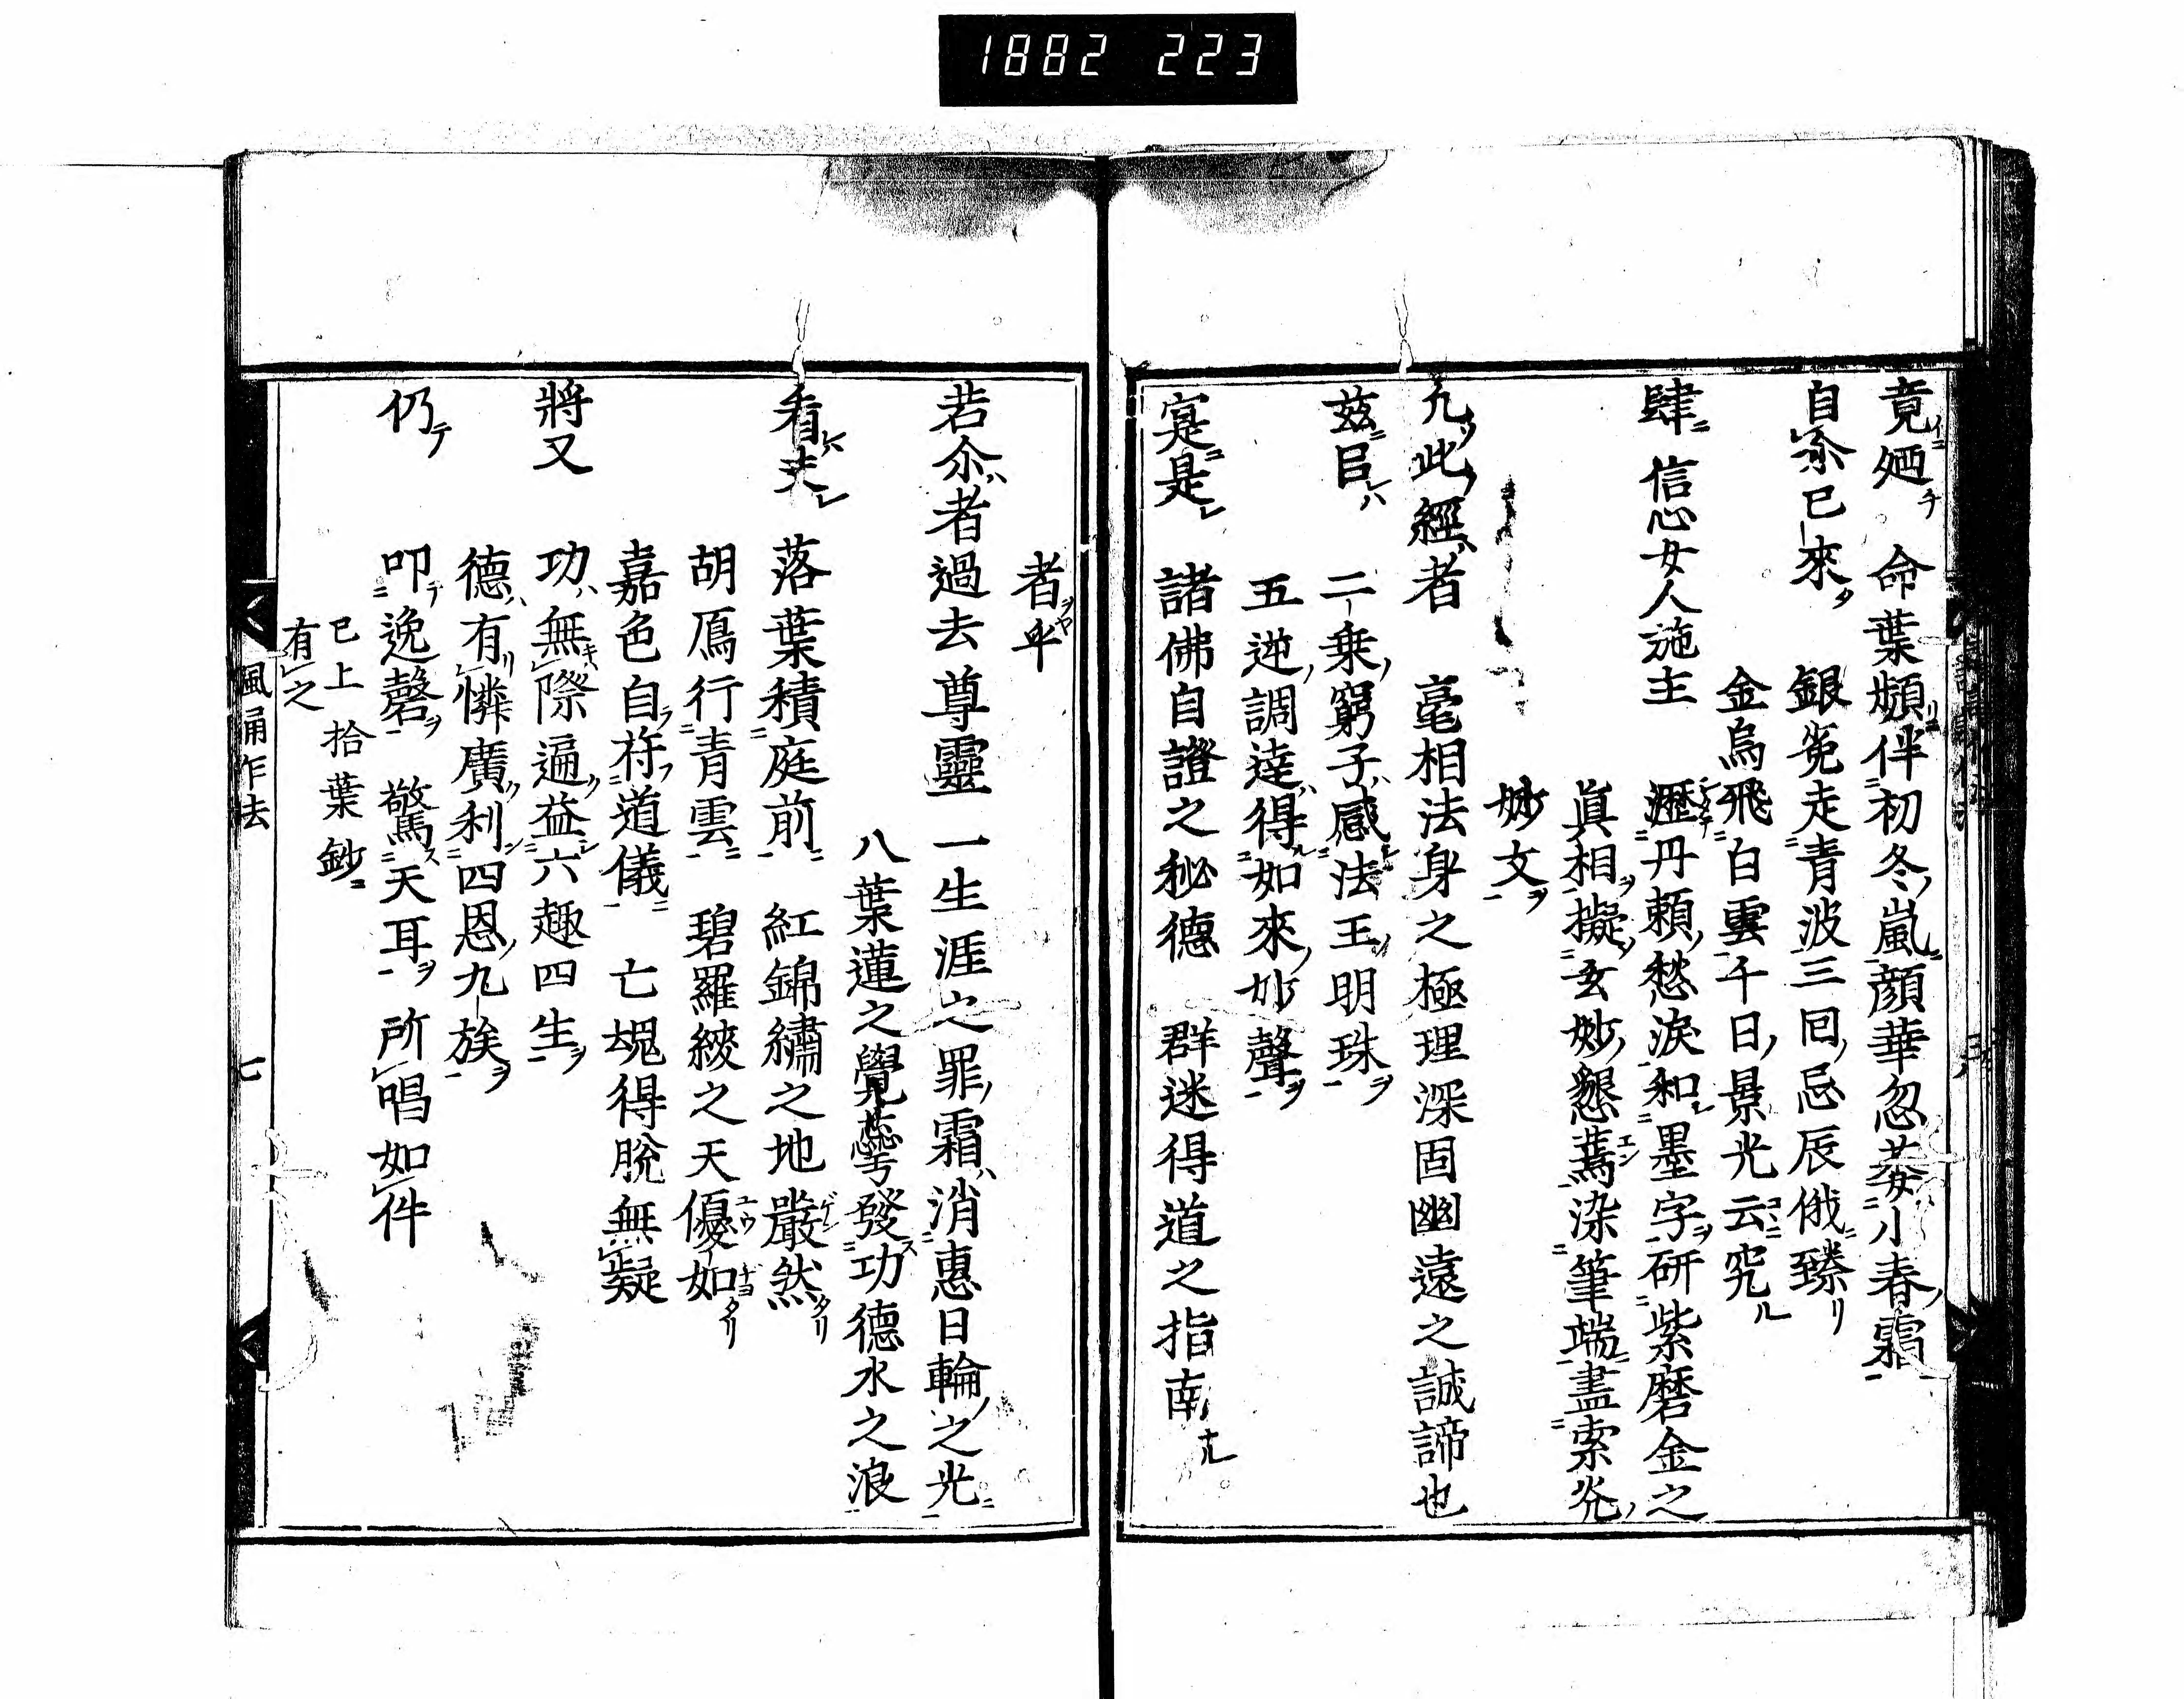 1882 223
竟廼 命葉頻伴初冬嵐顔華忽萎小春霜
自尒已來 銀兔走青波三回忌辰俄臻
金烏飛白雲千日景光云究
肆 信心女人施主 瀝丹頼愁淚和墨字研紫磨金之
眞相擬玄妙懇蔫染筆端盡索
妙文
凢此經者 毫相法身之極理深固幽遠之誠諦也
茲㠯 二乗窮子感法王明珠
五逆調達得如來妙聲
寔是 諸佛自證之秘德 群迷得道之指南
者乎
若尒者過去尊靈 一生涯之罪霜消惠日輪之光
八葉蓮之覺蕊發功德水之浪
看夫 落葉積庭前 紅錦繡之地嚴然
胡鴈行青雲 碧羅綾之天優如
嘉色自符道儀 亡魂得脫無疑
將又 功無際遍益六趣四生
德有憐廣利四恩九族
仍 叩逸磬 驚天耳 所唱如件
已上拾葉鈔
有之
風誦作法 七